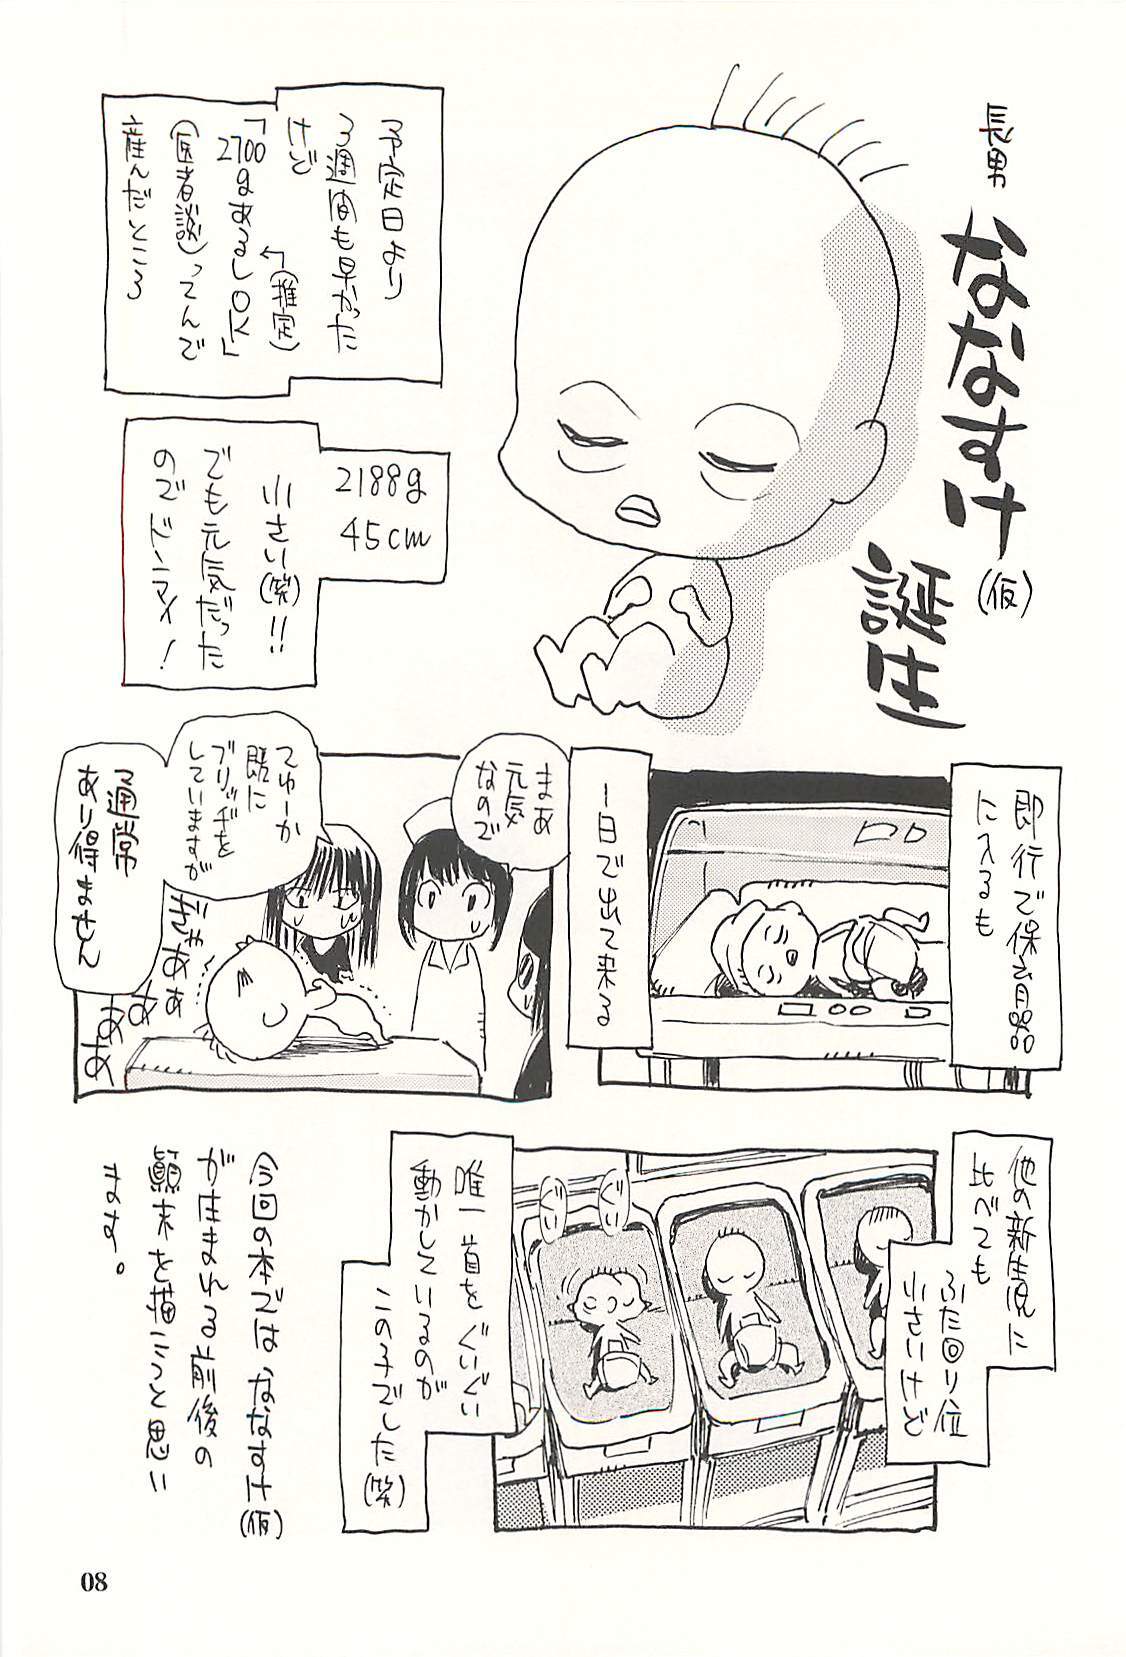 長男
ななすけ(仮)
誕生
予定日より
3週間も早かった
けど
「2700gあるしOK」
←(推定)
(医者談)ってんで
産んだところ
2188g
45cm
小さい(笑)!!
でも元気だった
のでドンマイ!
即行で保育器
に入るも
一日で出て来る
まあ
元気
なので
てゆーか
既に
ブリッヂを
していますが
通常
あり得ません
ぎゃああ
ああ
ああ
他の新生児に
比べても
ふた回り位
小さいけど
ぐいぐい
唯一首をぐいぐい
動かしているのが
この子でした(笑)
今回の本では、ななすけ(仮)
が生まれる前後の
顛末を描こうと思い
ます。
08